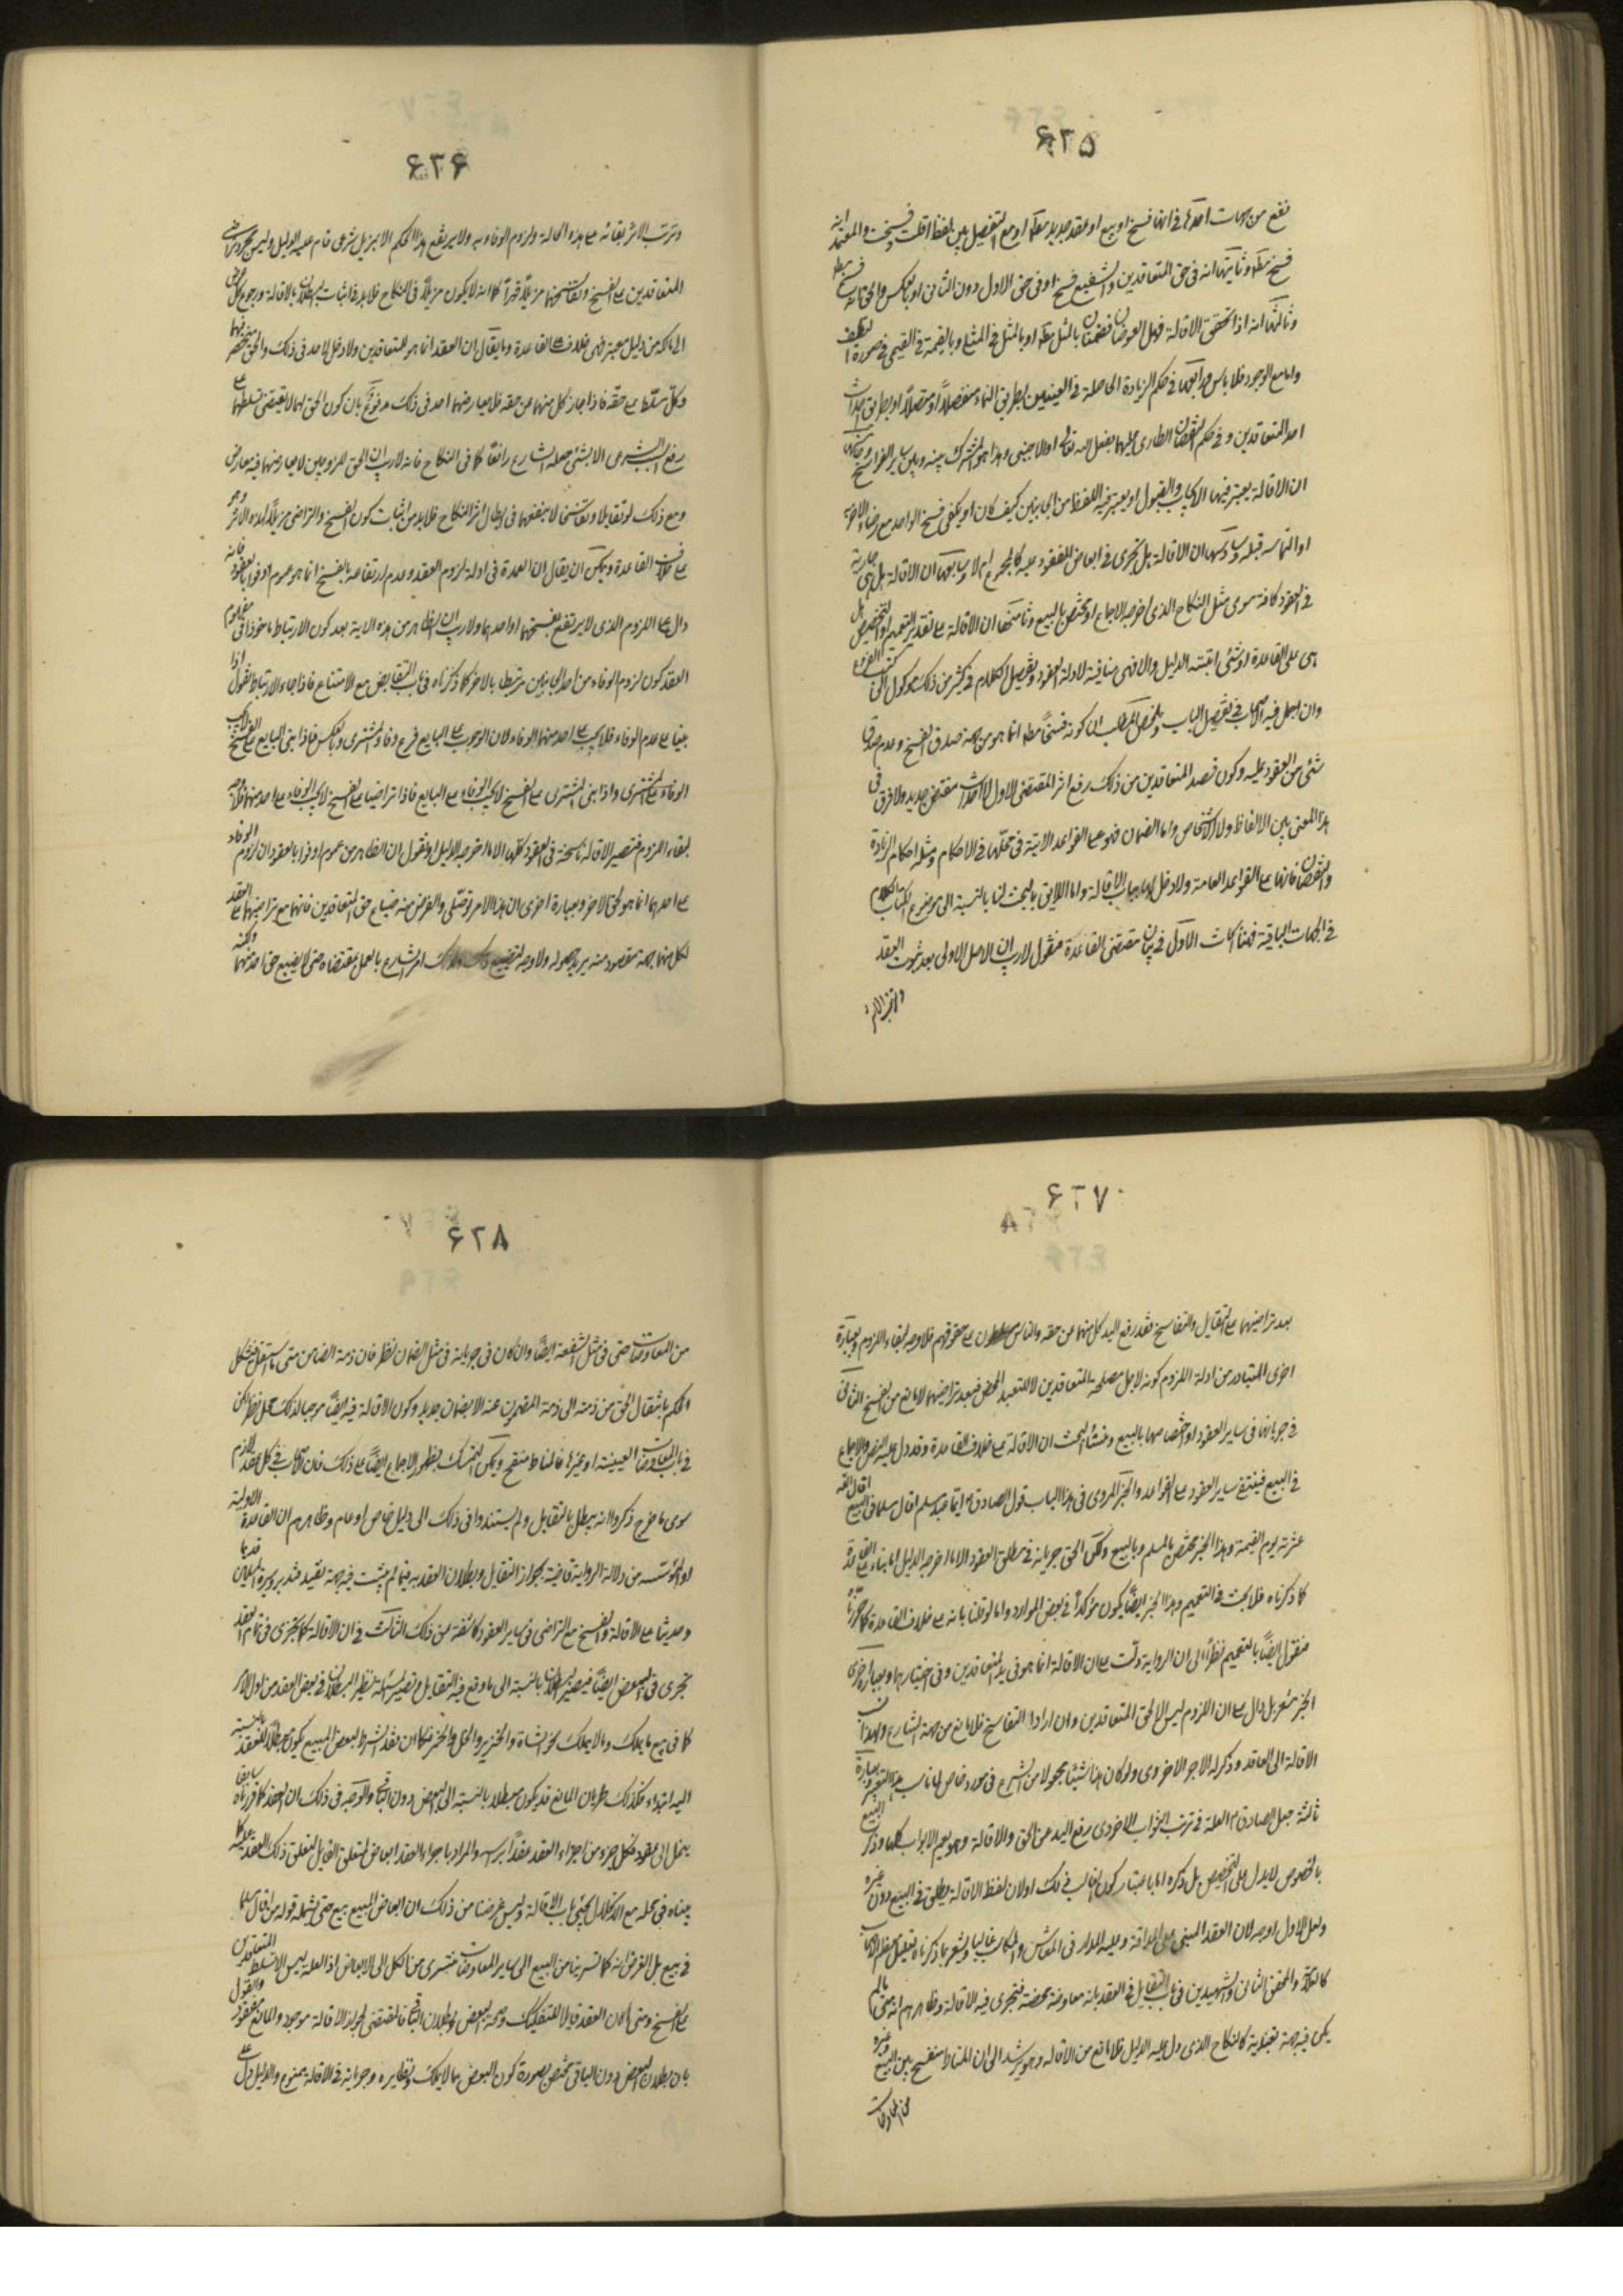 ۶۲۵
نقع من جهات احدها فى انها فسخ او بيع او عقد جديد مطلقا او مع التفصيل بين لفظ اقلت و فسخت والمعتمد انه
فسخ مطلقا وثانيتها انه فى حق المتعاقدين والشفيع فسخ او فى حق الاول دون الثانى او بالعكس والحق انه فسخ مطلقا
وثالثتها انه اذا تحقق الاقالة فهل العوضان مضمنتان بالمثل مطلقا او بالمثل فى المثلى و بالقيمة فى القيمى فى صورة التلف
واما مع الوجود فلا باس ورابعتها فى حكم الزيادة الحاصلة فى العينين بطريق النماء منفصلاً او متصلاً او بطريق احداث
احد المتعاقدين و فى حكم النقصان الطارى عليهما بفعل الله تعالى او الاجنبى وهذا هو المشترك بينه وبين ساير الفواسخ وخامستها
ان الاقالة يعتبر فيها الايجاب والقبول او يعتبر فيه اللفظ من الجانبين كيف كان او يكفى فسخ الواحد مع رضاء الاخر
او التماسه قبله وسادستها ان الاقالة هل تجرى فى ابعاض المعقود عليه كالمجموع ام لا وسابعتها ان الاقالة هل هى جارية
فى العقود كافة سوى مثل النكاح الذى اخرجه الاجماع او تختص بالبيع وثامنتها ان الاقالة على تقدير التعميم او التخصيص هل
هى على القاعدة او شئ اثبتته الدليل والا فهى منافية لادلة العقود وتفصيل الكلام فى كثير من ذلك موكول الى كتب الفروع
وان اهمل فيه الاصحاب فى تفصيل الباب وملخص المطلب ان كونه فسخاً مطلقا انما هو من جهة صدق الفسخ وعدم صدق
شئ من العقود عليه وكون قصد المتعاقدين من ذلك رفع اثر المقتضى الاول لا احداث مقتض جديد ولا فرق فى
هذا المعنى بين الالفاظ ولا الاشخاص واما الضمان فهو على القواعد الاتية فى محلها فى الاحكام ومثله احكام الزيادة
والنقصان فانها على القواعد العامة ولا دخل لها بباب الاقالة واما اللايق بالبحث لنا بالنسبة الى موضوع الكتاب الكلام
فى الجهات الباقية فهنا ابحاث الاول فى بيان مقتضى القاعدة فنقول لاريب ان الاصل الاولى بعد ثبوت العقد
وترتب الاثر
۶۲۶
وترتب الاثر بقائه على هذه الحالة ولزوم الوفاء به ولا يرتفع هذا الحكم الا بمزيل شرعى قام عليه الدليل وليس مجرد رضى
المتعاقدين على الفسخ وتفاسخهما مزيلاً قهراً كما انه لا يكون مزيلاً فى النكاح فلابد فى اثبات البطلان بالاقالة ورجوع كل عوض
الى مالكه من دليل معتبر فهى خلاف القاعدة وما يقال ان العقد انما هو للمتعاقدين ولا دخل لاحد فى ذلك والحق منحصر فيهما
وكل مسلّط على حقه فاذا جاز كل منهما عن حقه فلا يعارضهما احد فى ذلك مدفوع بان كون الحق لهما لا يقتضى تسلطهما على
رفع السبب الشرعى الا بشئ جعله الشارع رافعاً كما فى النكاح فانه لاريب ان الحق للزوجين لا يعارضهما فيه معارض
ومع ذلك لو تقايلا وتفاسخا لا ينفعهما فى ابطال اثر النكاح فلابد من اثبات كون الفسخ والتراضى مزيلاً لهذه الاثر وهو
على خلاف القاعدة ويمكن ان يقال ان العمدة فى ادلة لزوم العقد وعدم ارتفاعه بالفسخ انما هو عموم اوفوا بالعقود فانه
دال على اللزوم الذى لا يرتفع بفسخهما او احدهما ولاريب ان الظاهر من هذه الاية بعد كون الارتباط ماخوذا فى مفهوم
العقد كون لزوم الوفاء من احد الجانبين مرتبطا بالاخر كما ذكرناه فى باب التقابض مع الامتناع فاذا جاء الارتباط نقول اذا
بنيا على عدم الوفاء فلا يجب على احد منهما الوفاء لان الوجوب على البايع فرع وفاء المشترى وبالعكس فاذا بنى البايع على الفسخ لا يجب
الوفاء على المشترى واذا بنى المشترى على الفسخ لا يجب الوفاء على البايع فاذا تراضيا على الفسخ لا يجب الوفاء على احد منهما فلا وجه
لبقاء اللزوم فتصير الاقالة ناسخة فى العقود كلها الا ما اخرجه الدليل او نقول ان الظاهر من عموم اوفوا بالعقود ان لزوم الوفاء
على احدهما انما هو لحق الاخر وبعبارة اخرى ان هذا الامر توصّلى والغرض منه ضياع حق المتعاقدين فانهما مع تراضيهما على العقد
لكل منهما جهة مقصود منه يريد حصوله ولا وجه لتضييع ذلك ولذلك امر الشارع بالعمل بمقتضاه حتى لا يضيع حق احد منهما ولكنه
۶۲۷
بعد تراضيهما على التقايل والتفاسخ فقد رفع اليد كل منهما عن حقه والناس مسلطون على حقوقهم فلا وجه لبقاء اللزوم وبعبارة
اخرى المتبادر من ادلة اللزوم كونه لاجل مصلحة المتعاقدين لا للتعبد المحض فبعد تراضيهما لا مانع من الفسخ الثانى
فى جريانها فى ساير العقود او اختصاصها بالبيع ومنشأ البحث ان الاقالة على خلاف القاعدة وقد دل عليه النص والاجماع
فى البيع فيبقى ساير العقود على القواعد والخبر المروى فى هذا الباب قول الصادق ع ايما عبد مسلم اقال مسلما فى البيع اقال الله
عثرته يوم القيمة وهذا الخبر مختص بالمسلم وبالبيع ولكن الحق جريانه فى مطلق العقود الا ما اخرجه الدليل اما بناء على القاعدة
كما ذكرناه فلا بحث فى التعميم وهذا الخبر ايضاً يكون مؤكداً فى بعض الموارد واما لو قلنا بانه على خلاف القاعدة كما حررناه
فنقول ايضاً بالتعميم نظراً الى ان الرواية دلت على ان الاقالة انما هو فى يد المتعاقدين وفى اختيارهما وبعبارة اخرى
الخبر مشعر بل دال على ان اللزوم ليس الا لحق المتعاقدين وان ارادا التفاسخ فلا مانع من جهة الشارع ولهذا نسب
الاقالة الى العاقد وذكر له الاجر الاخروى ولو كان هذا شيئا مجعولا من الشرع فى مورد خاص لما ناسب هذا التعبير وبعبارة
ثالثة جعل الصادق ع العلة فى ترتب الثواب الاخروى رفع اليد عن الحق والاقالة وهو يعم الابواب كلها وذكر البيع
بالخصوص لا يدل على التخصيص بل ذكره اما باعتبار كون الغالب فى ذلك او لان لفظ الاقالة يطلق فى البيع دون غيره
ولعل الاول اوجه لان العقد المبنى على المداقة وعليه المدار فى المعاش والمكاسب غالبا ويشعر بما ذكرناه تعليل معظم الاصحاب
كالعلامة والمحقق الثانى والشهيدين فى باب التقايل فى العقد بانه معاوضة محضة فتجرى فيه الاقالة وظاهرهم انه متى ما لم
يكن فيه جهة تعبدية كالنكاح الذى دل عليه الدليل فلا مانع من الاقالة وهو يرشد الى ان المناط منقح بين البيع وغيره
من المعاوضات
۶۲۸
من المعاوضات حتى فى مثل الشفعة ايضاً وان كان فى جريانه فى مثل الضمان نظر فان ذمة الضامن متى ما اشتغل فيشكل
الحكم بانتقال الحق من ذمته الى ذمة المضمون عنه الا بضمان جديد وكون الاقالة فيه ايضاً موجبا لذلك محل نظر لكن
فى باب المعاوضات العينية او غيرها فالمناط منقح ويمكن التمسك بظهور الاجماع ايضاً على ذلك فان الاصحاب فى كل عقد لازم
سوى ما خرج ذكروا انه يبطل بالتقايل ولم يستندوا فى ذلك الى دليل خاص او عام وظاهرهم ان القاعدة الاولية
او المؤسسه من دلالة الرواية قاضية بجواز التقايل وبطلان العقد به فيما لم يثبت فيه جهة تقييد فتدبر وسيرة المسلمين قديما
وحديثا على الاقالة والفسخ مع التراضى فى ساير العقود كاشفة عن ذلك الثالث فى ان الاقالة كما تجرى فى تمام العقد
تجرى فى البعض ايضاً فيصير البطلان بالنسبة الى ما وقع فيه التقايل وتصير المسئلة نظير البطلان فى بعض العقد من اول الامر
كما فى بيع ما يملك وما لا يملك نحو الشاة والخنزير والخل والخمر فكما ان فقد الشرط لبعض المبيع يكون مبطلاً للعقد بالنسبة
اليه ابتداء فكذلك طريان المانع قد يكون مبطلا بالنسبة الى البعض دون الباقى والوجه فى ذلك ان العقد كما قررناه سابقا
ينحل الى عقود فكل جزء من اجزاء العقد عقداً برأسه والمراد باجزاء العقد ابعاض المتعلق القابل لتعلق ذلك العقد عليه كما
بيناه فى محله مع الانحلال يجئ باب الاقالة وليس غرضنا من ذلك ان ابعاض المبيع بيع حتى يشمله قوله من اقال مسلما
فى بيع بل الغرض انه كما تسرينا من البيع الى ساير المعاوضات فنسرى من الكل الى الابعاض اذ العلة ليس الا تسلط المتعاقدين
على الفسخ ومتى ما كان العقد قابلا للتفكيك وصحة البعض وبطلان الباقى فالمقتضى لجواز الاقالة موجود والمانع مفقود والقول
بان بطلان البعض دون الباقى مختص بصورة كون البعض مما لا يملك ونظايره وجريانه فى الاقالة ممنوع والدليل دل على